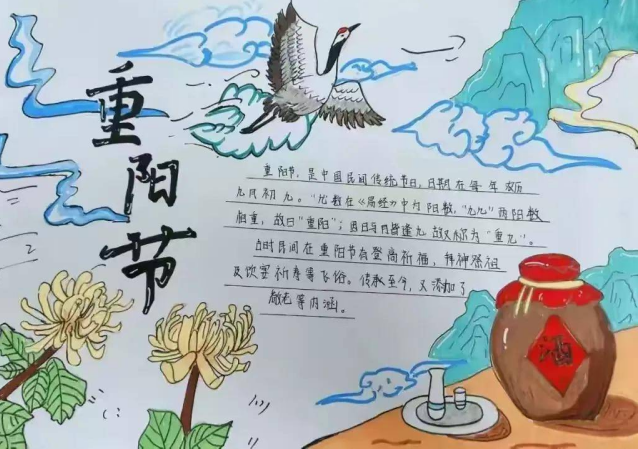 重阳节
重阳节,是中国民间传统节日,日期在每年农历
九月初九。"九"数在《易经》中为阳数,"九九"两阳数
相重,故曰"重阳";因日与月皆逢九,故又称为"重九"。
古时民间在重阳节有登高祈福、拜神祭祖
及饮宴祈寿等习俗。传承至今,又添加了
敬老等内涵。
酒